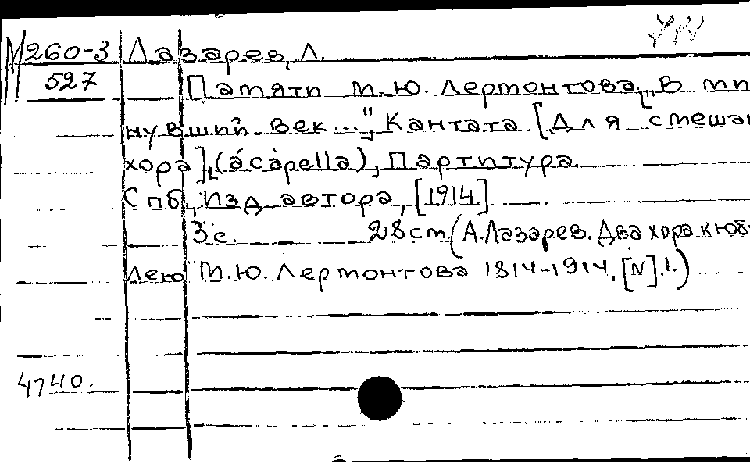 М260-3 Лазарев, Л.
527 Памяти М.Ю. Лермонтова [„В ми
нувший век..."]. Кантата [Для смешан
хора], (acapella), Партитура.
Спб, Изд. автора, [1914]
3с. 28cm (А.Лазарев. Два хора к юби
лею М.Ю. Лермонтова 1814-1914. [N].1.)
4740.